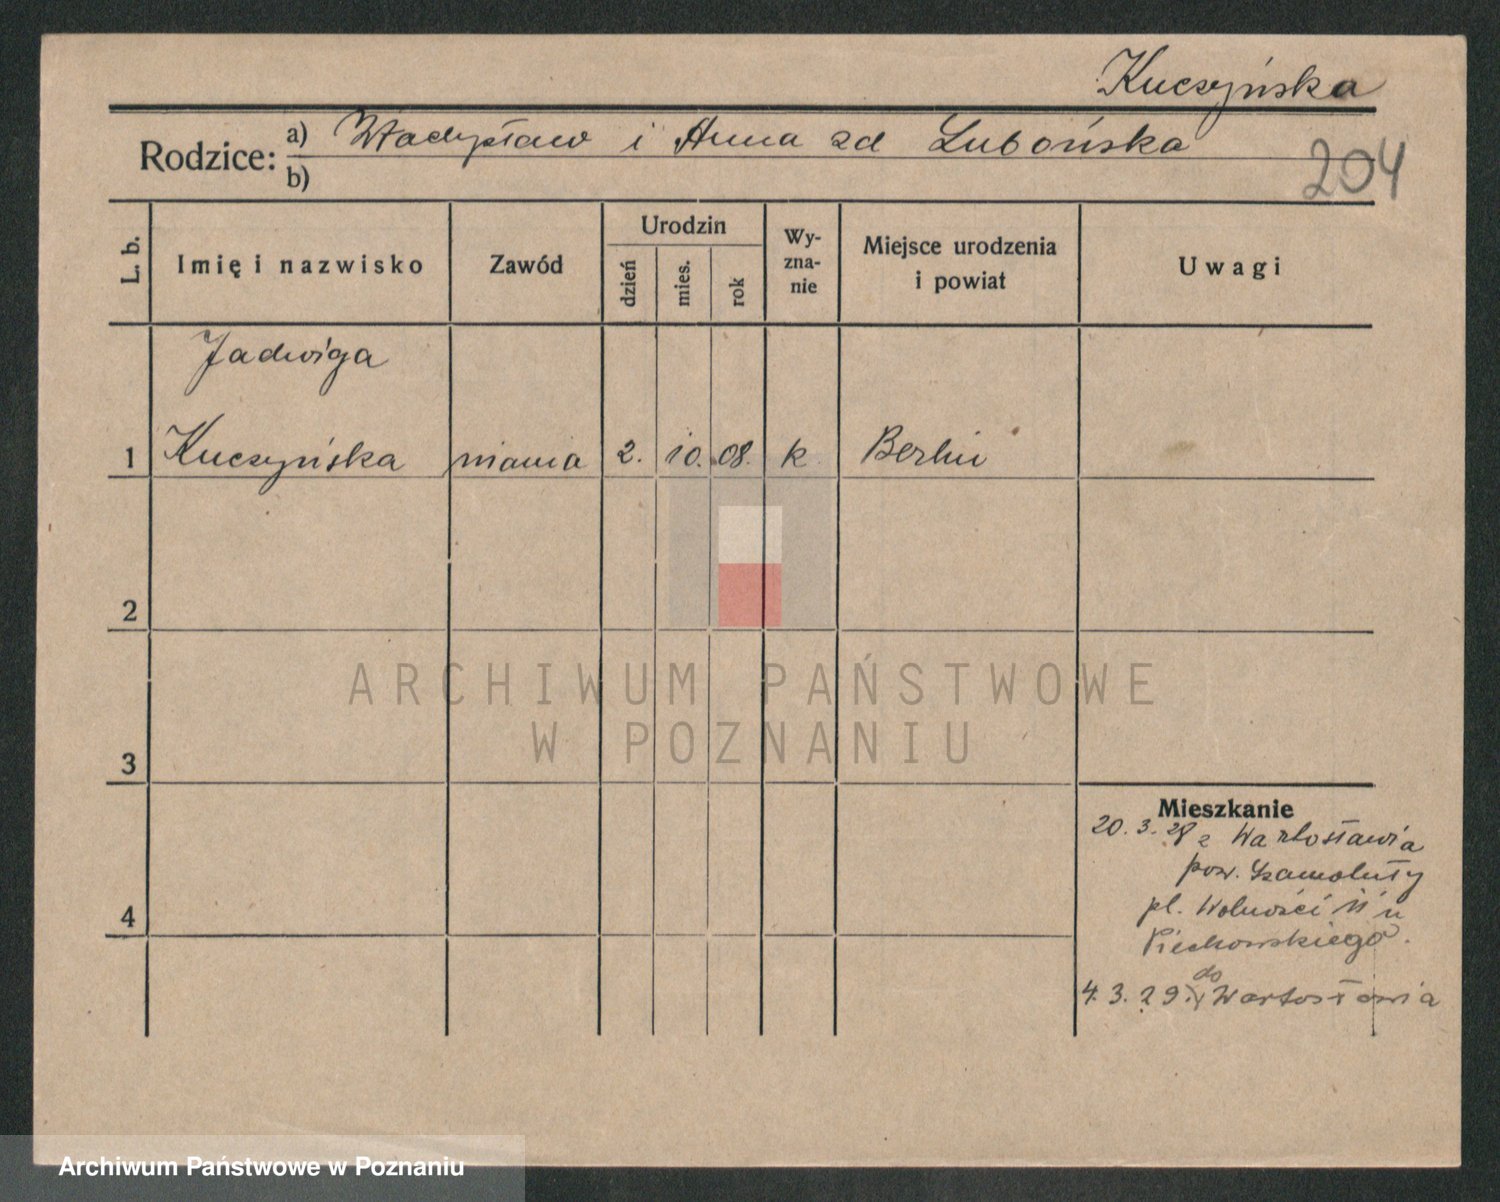 Kuczyńska
Rodzice: a) Władysław i Anna zd Lubońska
b)
204
L. b.
Imię i nazwisko
Zawód
Urodzin
dzień
mies.
rok
Wy-
zna-
nie
Miejsce urodzenia
i powiat
Uwagi
Jadwiga
1 Kuczyńska niania 2. 10. 08. k Berlin
2
3
4
ARCHIWUM PAŃSTWOWE
W POZNANIU
Mieszkanie
20. 3. 28 z Wartosławia
pow. Szamotuły
pl. Wolności 11 u
Piechowskiego.
do
4. 3. 29. Wartosławia
Archiwum Państwowe w Poznaniu